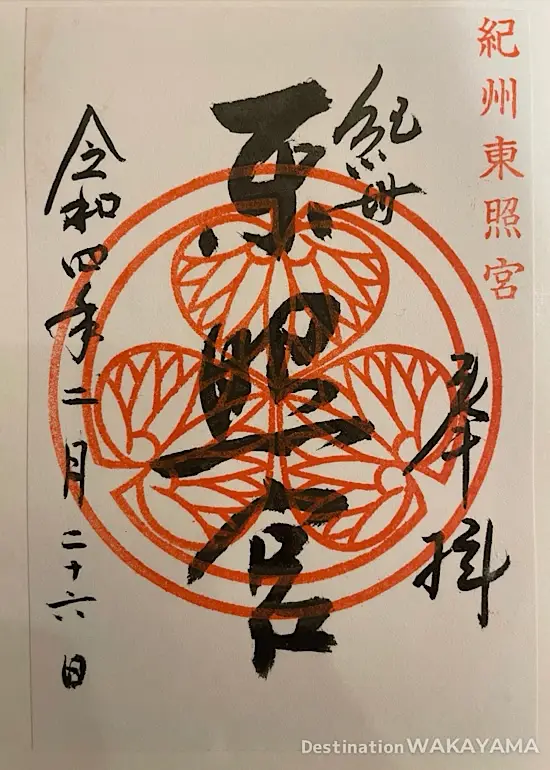 紀州東照宮
奉拝
紀州
東照宮
令和四年二月二十六日
Destination WAKAYAMA